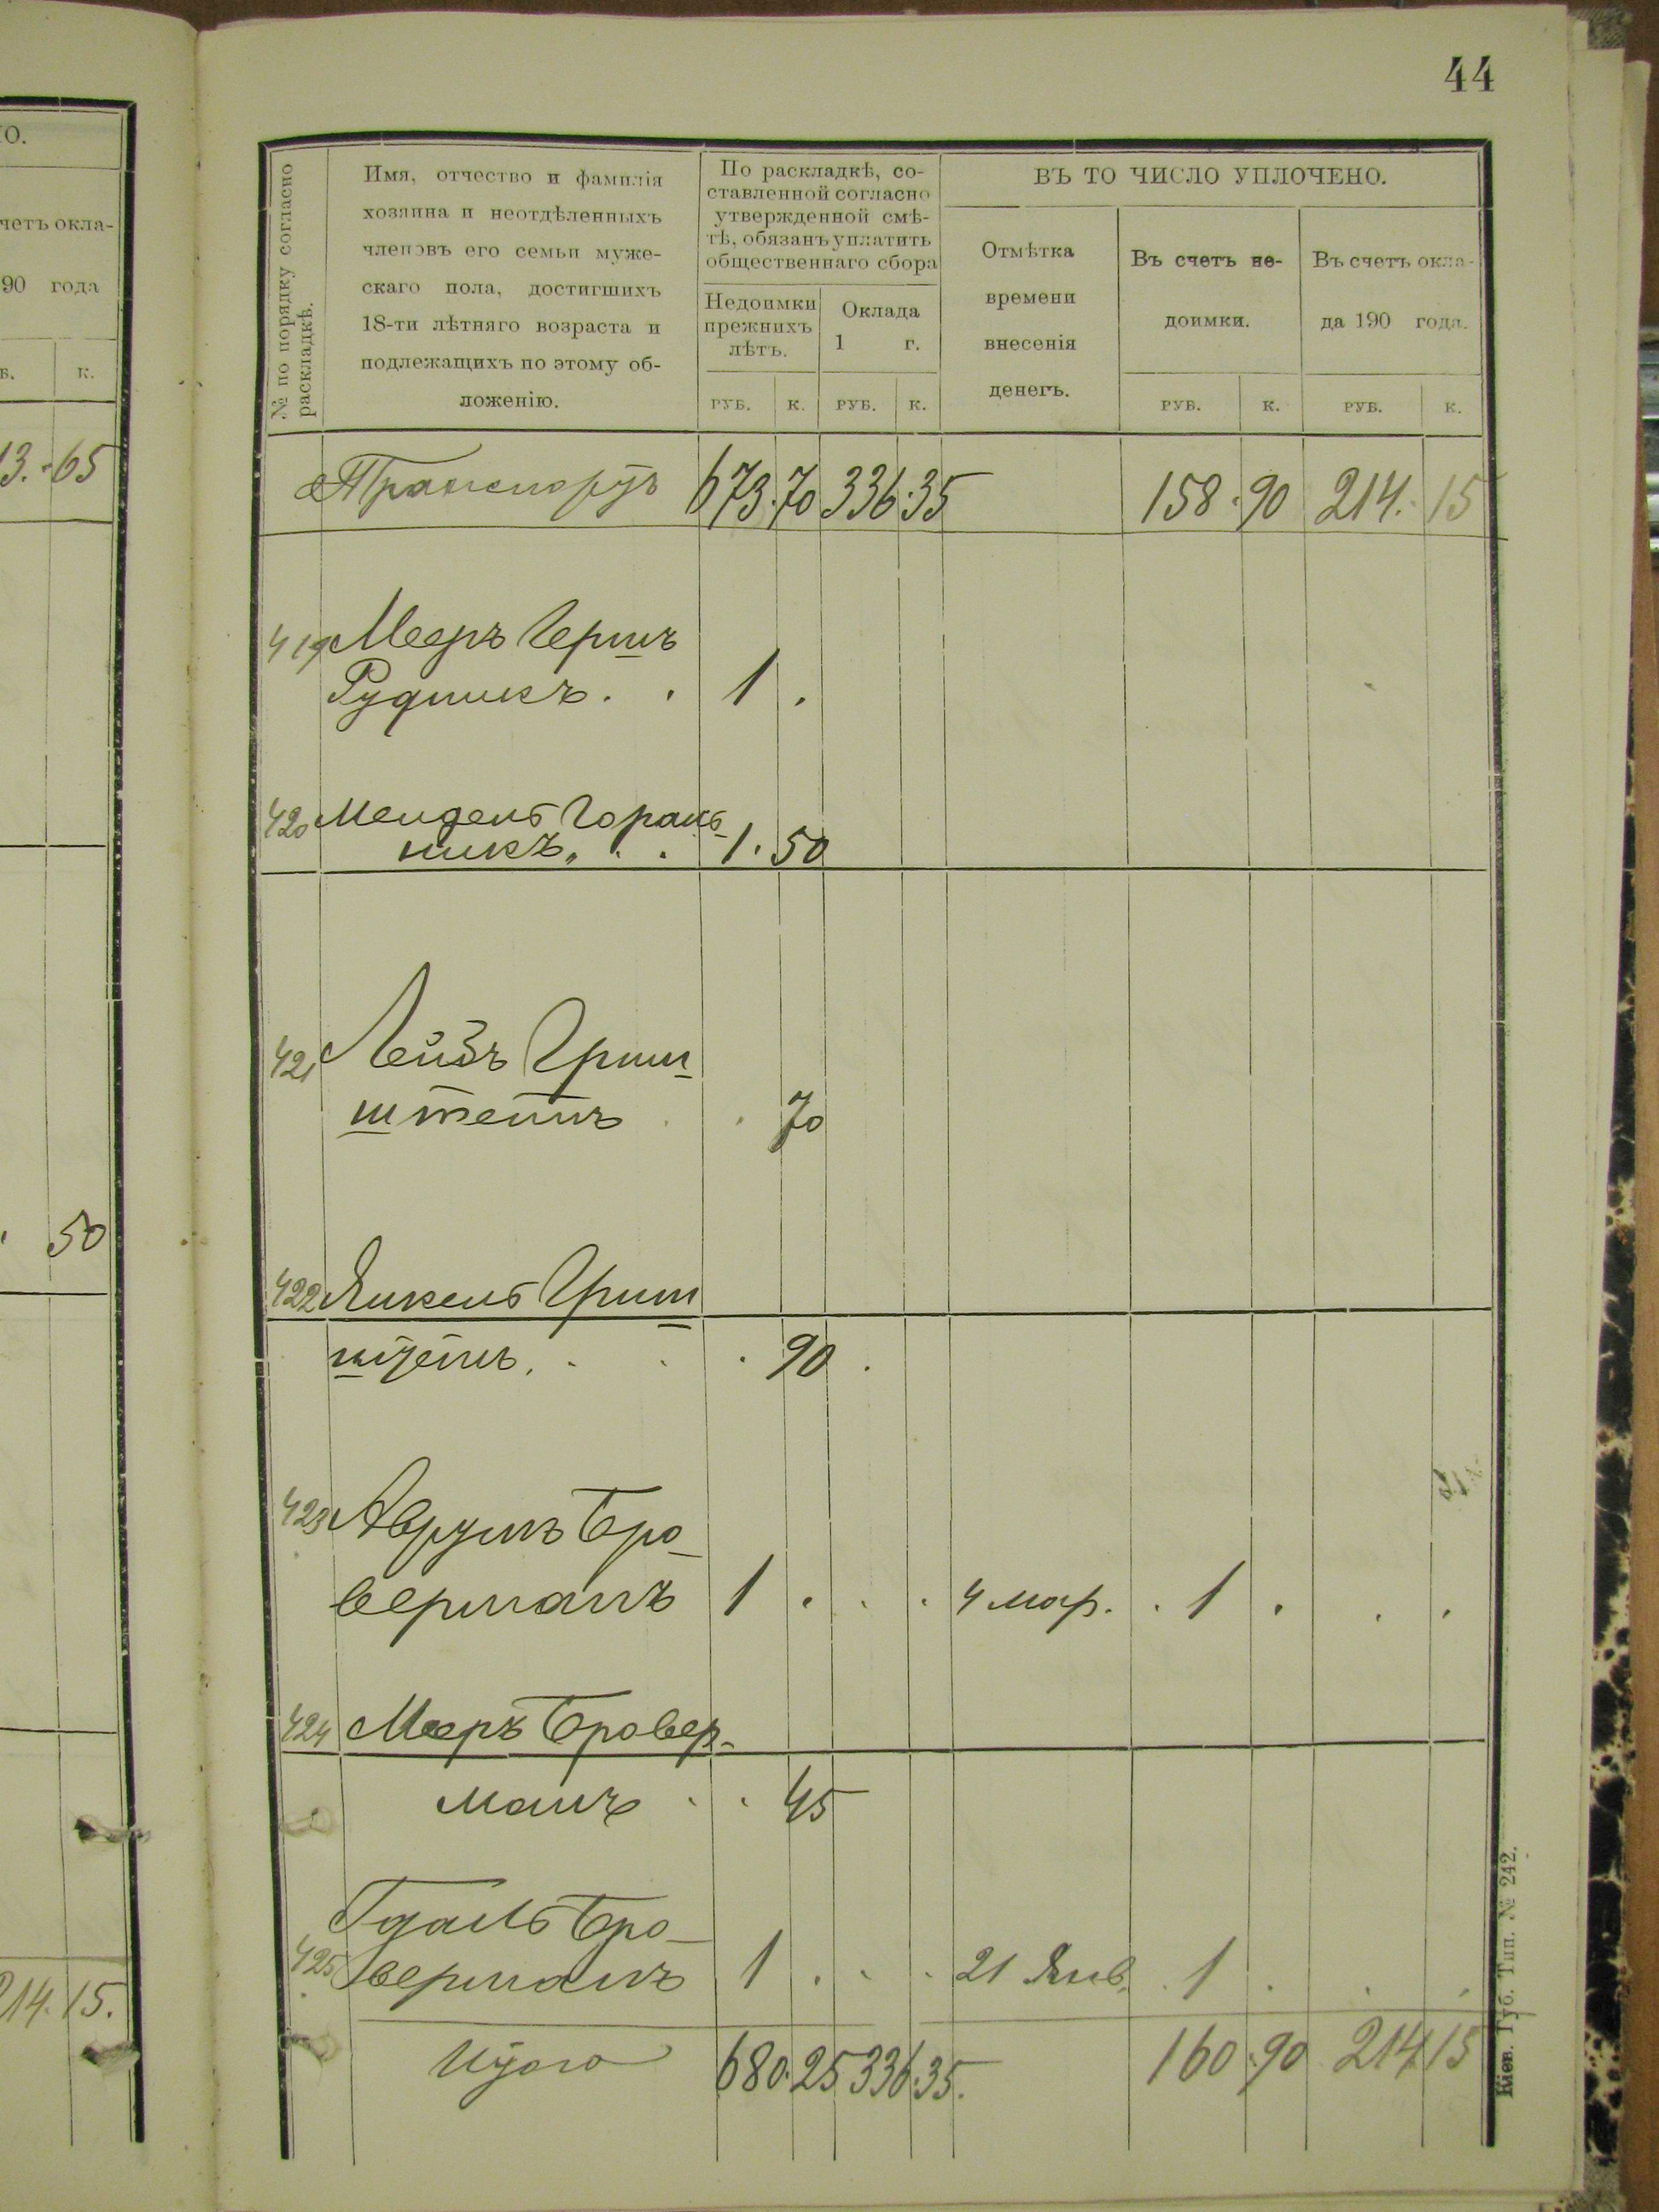 44
О.
четъ окла-
90 года
в. к.
13. 65
50
214. 15.
№ по порядку согласно
раскладкѣ.
Имя, отчество и фамилія
хозяина и неотдѣленныхъ
членовъ его семьи муже-
скаго пола, достигшихъ
18-ти лѣтняго возраста и
подлежащихъ по этому об-
ложенію.
По раскладкѣ, со-
ставленной согласно
утвержденной смѣ-
тѣ, обязанъ уплатить
общественнаго сбора
Недоимки
прежнихъ
лѣтъ.
Оклада
1 г.
РУБ. К. РУБ. К.
ВЪ ТО ЧИСЛО УПЛОЧЕНО.
Отмѣтка
времени
внесенія
денегъ.
Въ счетъ не-
доимки.
Въ счетъ окла-
да 190 года.
РУБ. К. РУБ. К.
Транспортъ 673.70 336.35 158.90 214.15
419 Мееръ Гершъ
Рудникъ . . 1 .
420 Мендель Гораль
никъ . . 1.50
421 Лейзъ Грин-
штейнъ . . 70
422 Янкель Грин
штейнъ . . . 90 .
423 Аврумъ Бро-
верманъ 1 . . . 4 мар. . 1 . . .
424 Мееръ Бровер-
манъ . . 45
Гдаль Бро-
425 верманъ 1 . . . 21 Янв. . 1 . . .
Итого 680.25 336.35. 160.90 214 15
Кіев. Губ. Тип. № 242.